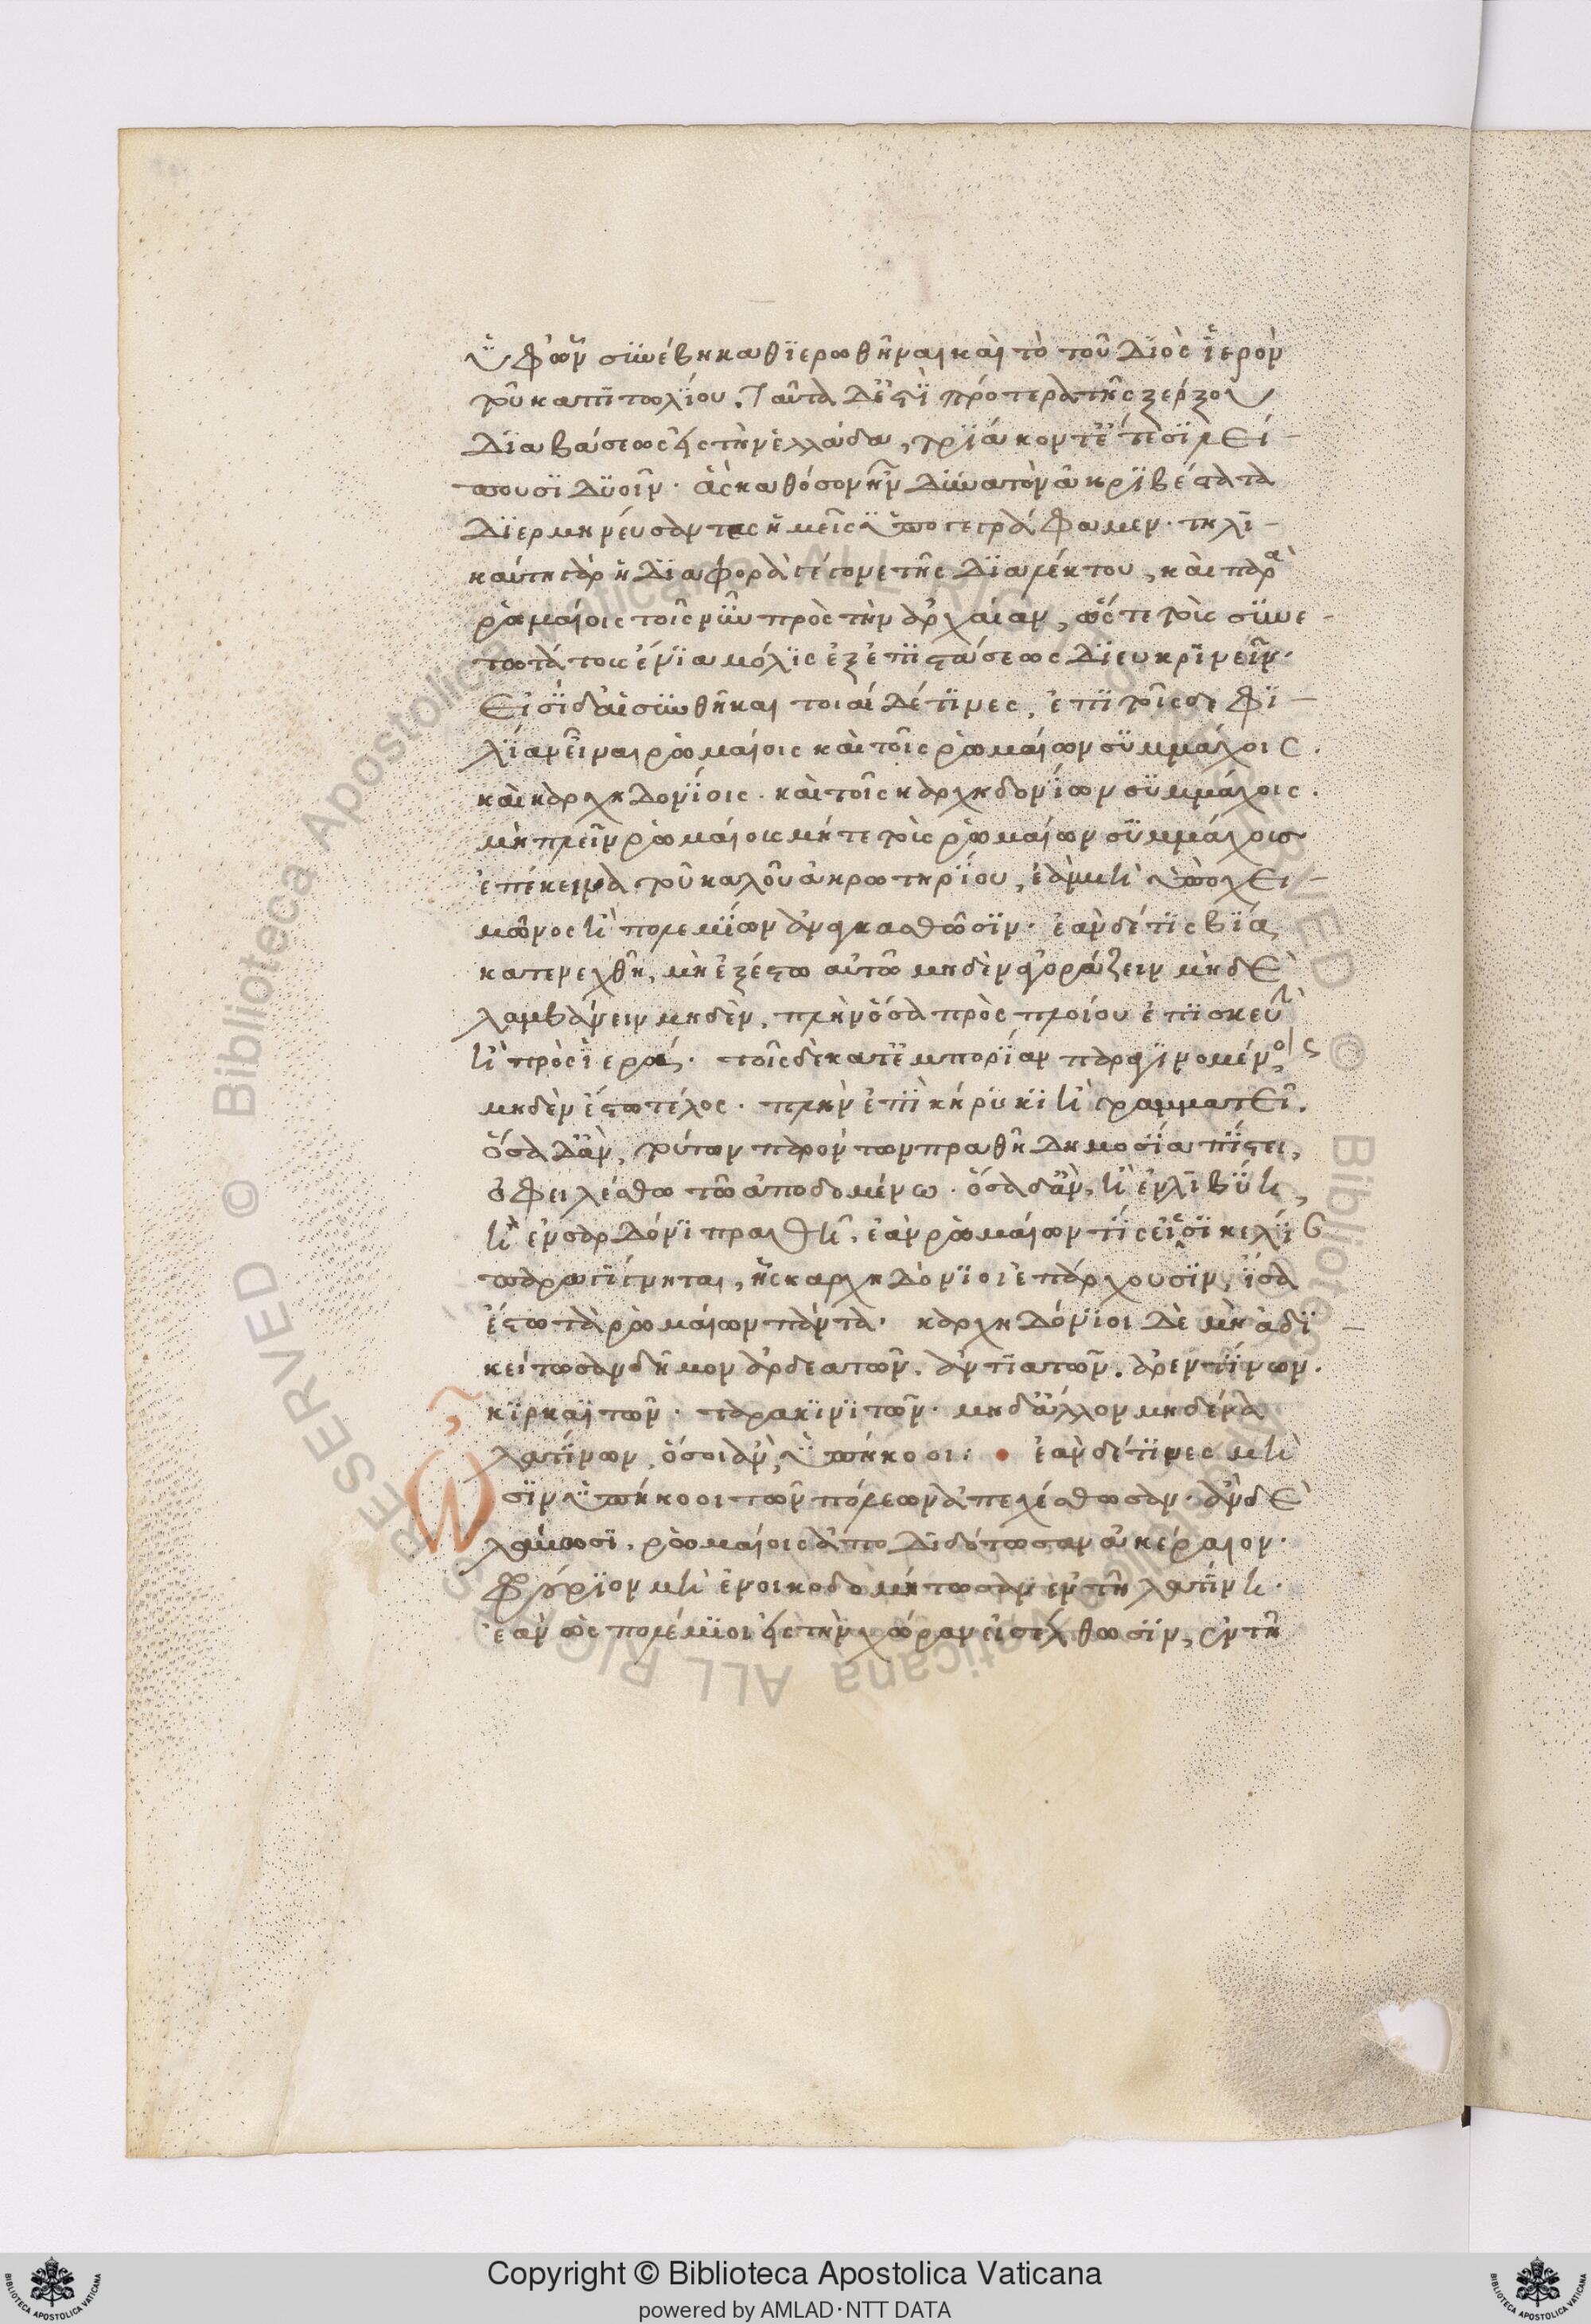 ὑφ' ὧν συνέβη καθιερωθῆναι καὶ τὸ τοῦ Διὸς ἱερὸν
τοῦ καπιτωλίου. Ταῦτα δ' ἔστι πρότερα τῆς ξέρξου
διαβάσεως εἰς τὴν ἑλλάδα, τριάκοντ' ἔτεσι λεί-
πουσι δυοῖν. ἃς καθόσον ἦν δυνατὸν ἀκριβέστατα
διερμηνεύσαντες ἡμεῖς ὑπογεγράφαμεν. τηλι-
καύτη γὰρ ἡ διαφορὰ γέγονε τῆς διαλέκτου, καὶ παρὰ
ῥωμαίοις τοῖς νῦν πρὸς τὴν ἀρχαίαν, ὥστε τοὺς συνε-
τωτάτους ἔνια μόλις ἐξ ἐπιστάσεως διευκρινεῖν.
Εἰσὶ δ' αἱ συνθῆκαι τοιαίδέ τινες, ἐπὶ τοῖσδε φι-
λίαν εἶναι ῥωμαίοις καὶ τοῖς ῥωμαίων συμμάχοις.
καὶ καρχηδονίοις. καὶ τοῖς καρχηδονίων συμμάχοις.
μὴ πλεῖν ῥωμαίους μήτε τοὺς ῥωμαίων συμμάχους
ἐπέκεινα τοῦ καλοῦ ἀκρωτηρίου, ἐὰν μὴ ὑπὸ χει-
μῶνος ἢ πολεμίων ἀναγκασθῶσιν. ἐὰν δέ τις βίᾳ
κατενεχθῇ, μὴ ἐξέστω αὐτῷ μηδὲν ἀγοράζειν μηδὲ
λαμβάνειν μηδὲν, πλὴν ὅσα πρὸς πλοίου ἐπισκευὴν
ἢ πρὸς ἱερά. τοῖς δὲ κατ' ἐμπορίαν παραγινομένοις
μηδὲν ἔστω τέλος. πλὴν ἐπὶ κήρυκι ἢ γραμματεῖ.
ὅσα δ' ἂν, τούτων παρόντων πραθῇ δημοσίᾳ πίστει,
ὀφειλέσθω τῷ ἀποδομένω. ὅσα δ' ἂν, ἢ ἐν λιβύη,
ἢ ἐν σαρδόνι πραθῆ, ἐὰν ῥωμαίων τίς εἰς σικελίαν
παραγίγνηται, ἧς καρχηδόνιοι ἐπάρχουσιν, ἴσα
ἔστω τὰ ῥωμαίων πάντα. καρχηδόνιοι δὲ μὴ ἀδι-
κείτωσαν δῆμον ἀρδεατῶν. ἀντιατῶν. ἀρεντίνων.
κιρκαιϊτῶν. ταρακινιτῶν. μηδ' ἄλλον μηδένα
λατίνων, ὅσοι ἂν, ὑπήκοοι: ἐὰν δέ τινες μὴ
ὦσιν ὑπήκοοι τῶν πόλεων ἀπεχέσθωσαν. ἂν δὲ
λάβωσι, ῥωμαίοις ἀποδιδότωσαν ἀκέραιον.
φρούριον μὴ ἐνοικοδομήτωσαν ἐν τῆ λατίνη.
ἐὰν ὡς πολέμιοι εἰς τὴν χώραν εἰσέλθωσιν, ἐν τῆ
Copyright © Biblioteca Apostolica Vaticana
powered by AMLAD·NTT DATA